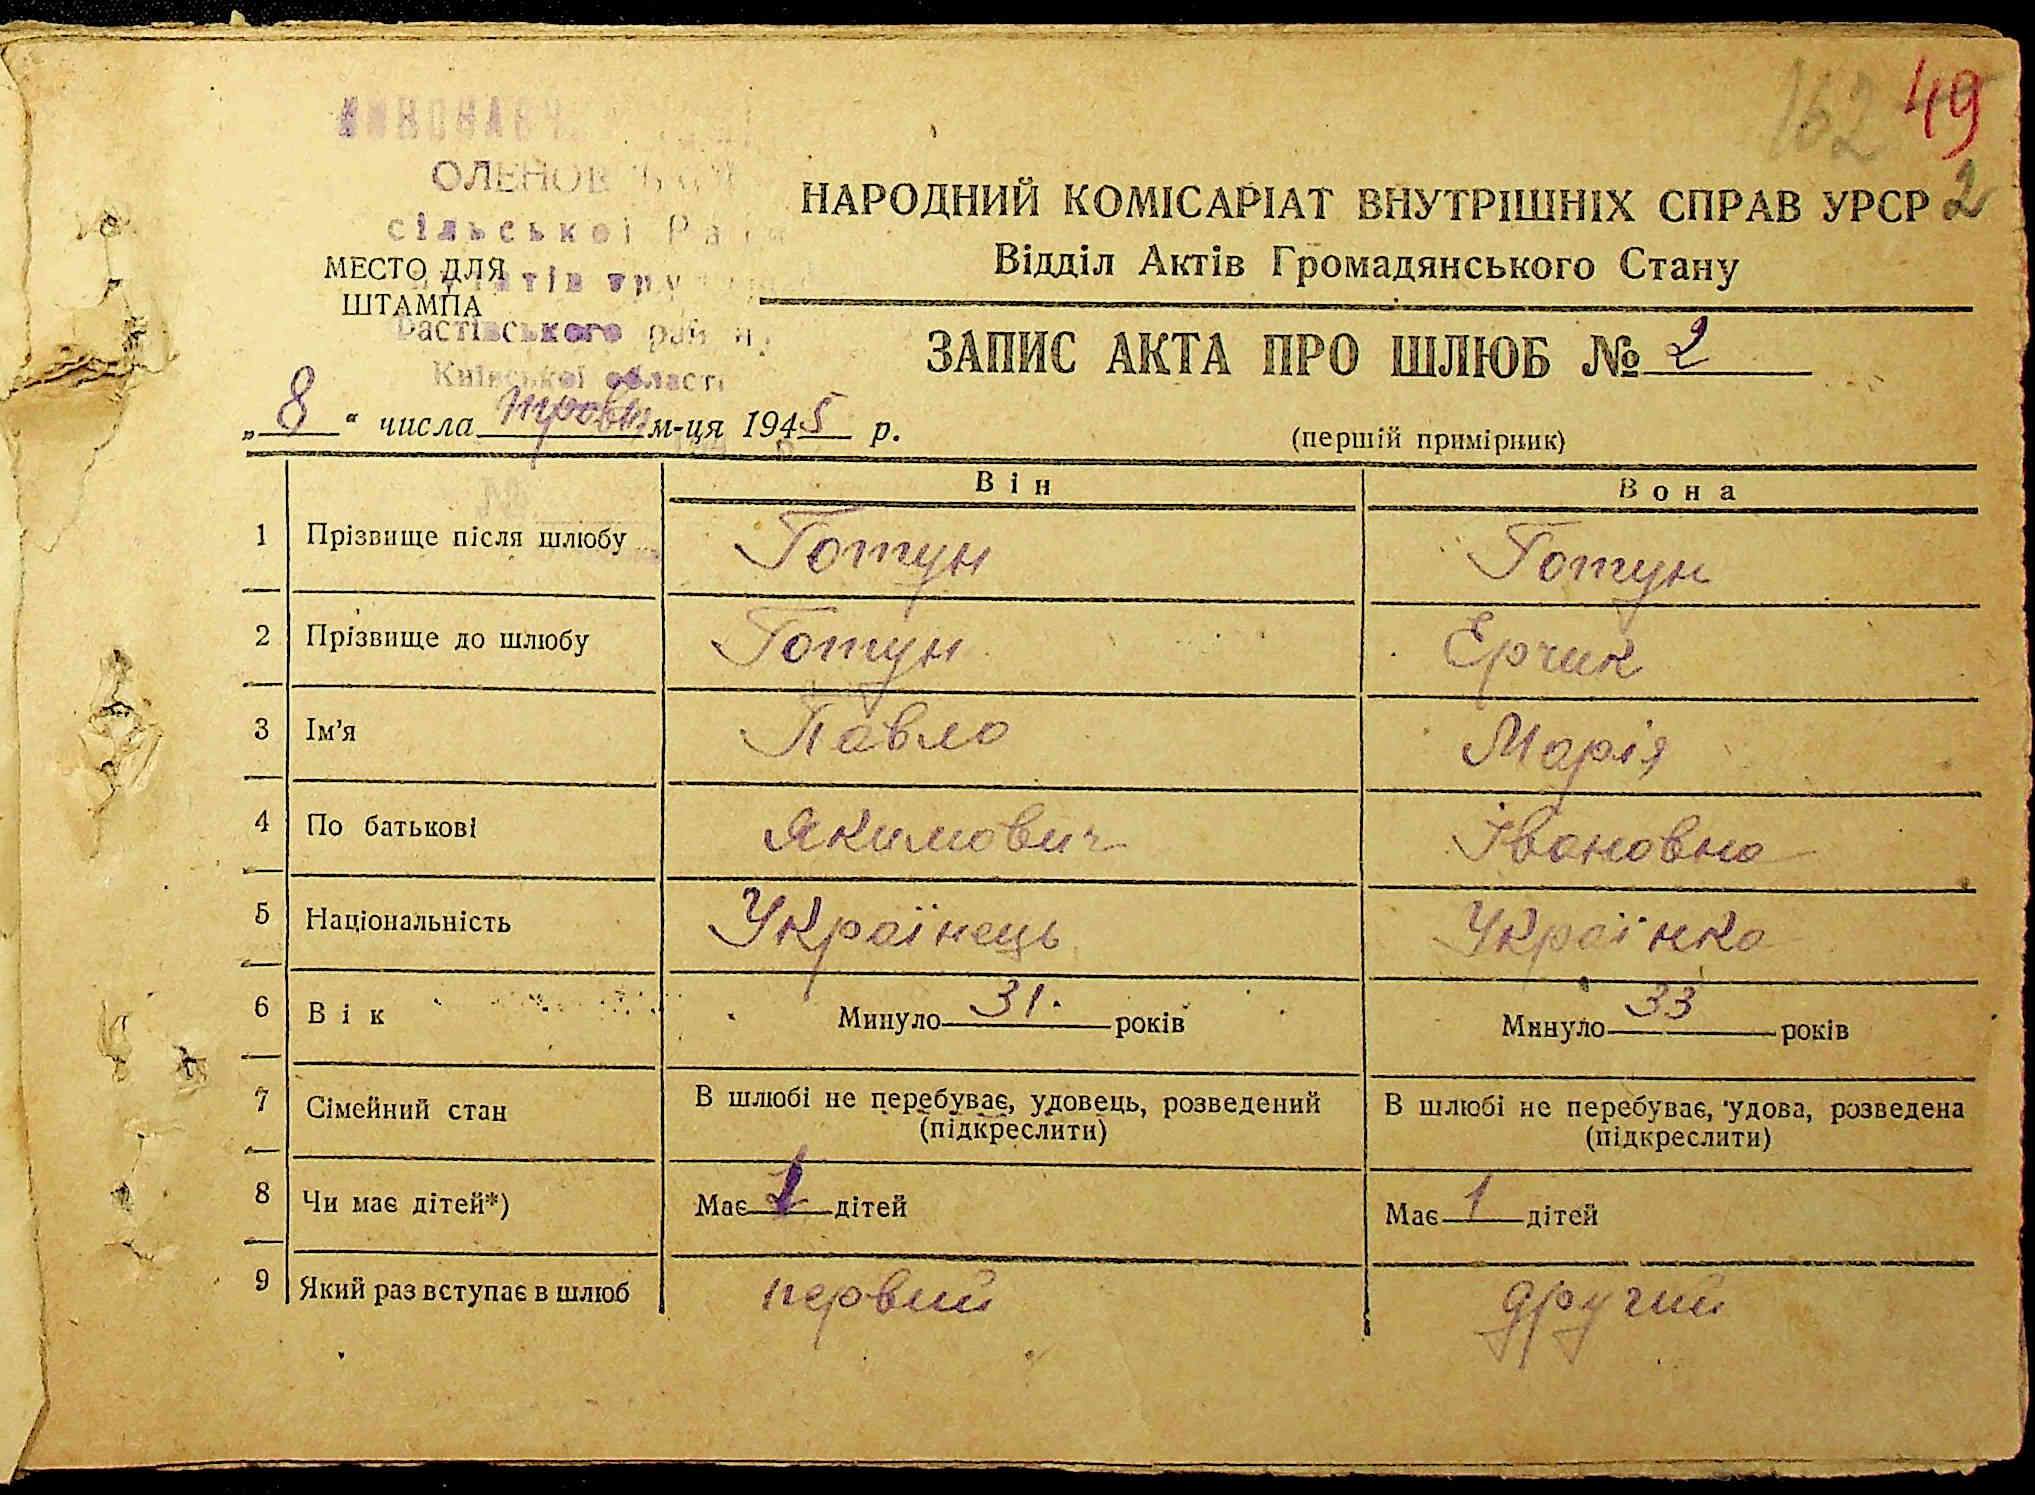 162 49
ОЛЕНОВ
сільської
2
НАРОДНИЙ КОМІСАРІАТ ВНУТРІШНІХ СПРАВ УРСР
Відділ Актів Громадянського Стану
МЕСТО ДЛЯ
ШТАМПА
Фастівського
Київської області
ЗАПИС АКТА ПРО ШЛЮБ № 2
„ 8 “ числа травня м-ця 1945 р.
(першій примірник)
Він Вона
1 Прізвище після шлюбу Готун Готун
2 Прізвище до шлюбу Готун Ерчик
3 Ім'я Павло Марія
4 По батькові Якимович Івановна
5 Національність Українець Українка
6 Вік Минуло 31 років Минуло 33 років
7 Сімейний стан В шлюбі не перебуває, удовець, розведений В шлюбі не перебуває, удова, розведена
(підкреслити) (підкреслити)
8 Чи має дітей*) Має 1 дітей Має 1 дітей
9 Який раз вступає в шлюб первий другий